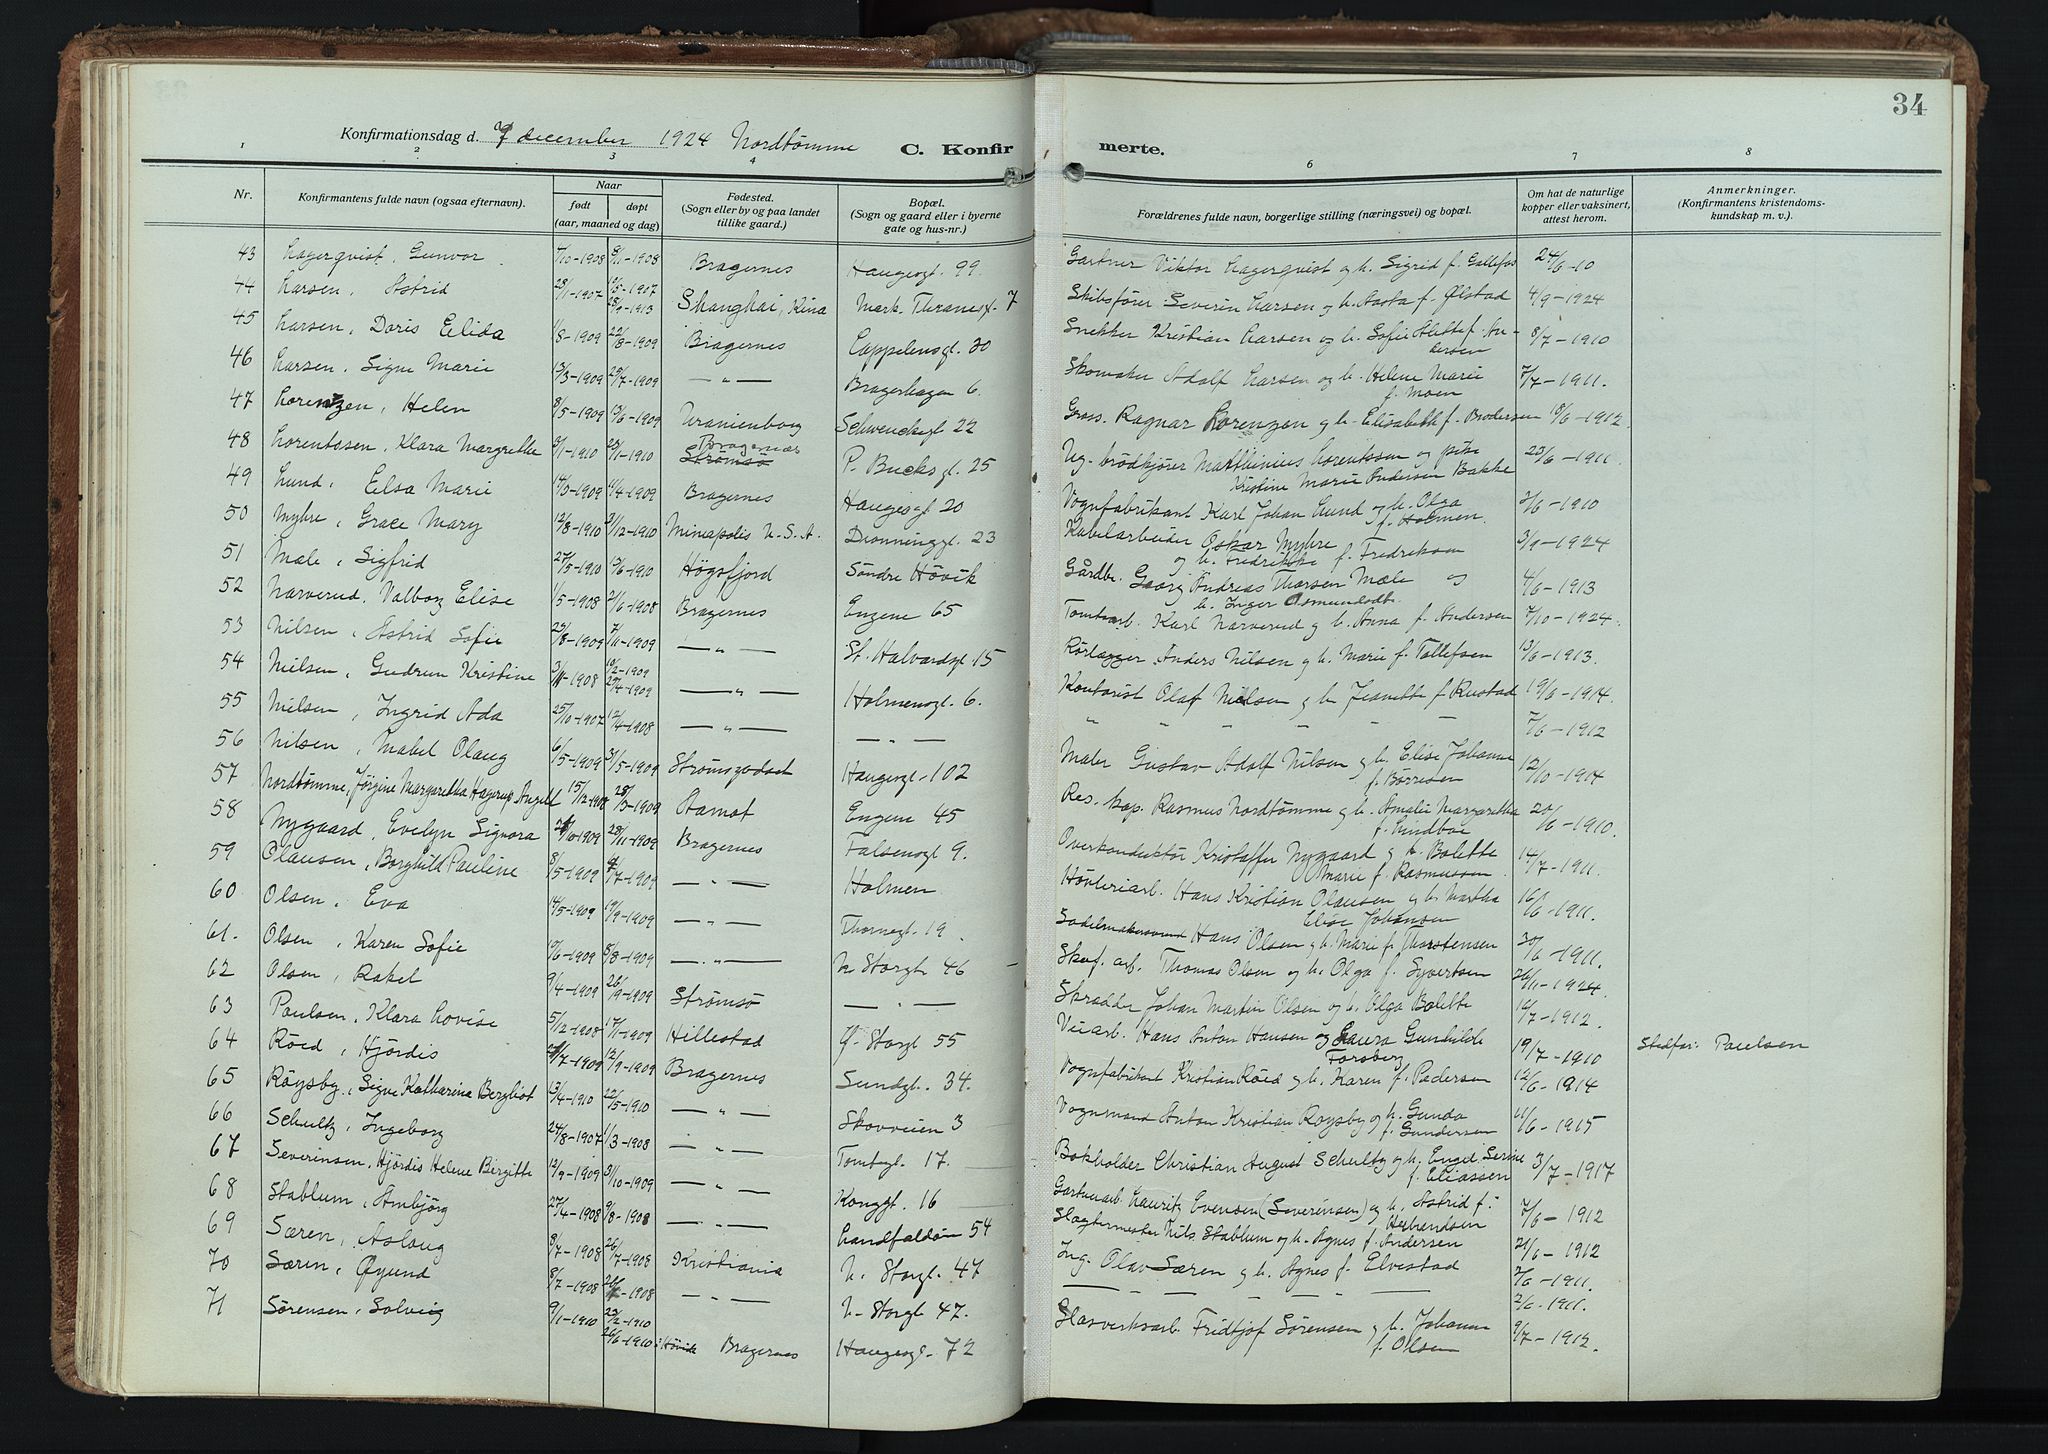 34
Konfirmationsdag d. 7 december 1924 Nordtømme C. Konfirmerte.
1 2 3 4 6 7 8
Nr. Konfirmantens fulde navn (ogsaa efternavn). Naar født døpt (aar, maaned og dag) Fødested. (Sogn eller by og paa landet tillike gaard.) Bopæl. (Sogn og gaard eller i byerne gate og hus-nr.) Forældrenes fulde navn, borgerlige stilling (næringsvei) og bopæl. Om hat de naturlige kopper eller vaksinert, attest herom. Anmerkninger. (Konfirmantens kristendomskundskap m. v.).
43 Lagerqvist, Gunvor 7/10-1908 8/11-1908 Bragernes Haugesgt. 99. Gartner Viktor Lagerqvist og h. Sigrid f. Gallefos 24/6-10
44 Larsen, Astrid 28/1-1907 Shanghai, Kina Mark. Thranesgt. 7 Skibsfører Severin Larsen og h. Aasta f. Ølstad 4/9-1924
45 Larsen, Doris Elida 1/8-1909 22/8-1909 Bragernes Cappelensgt. 30 Snekker Kristian Larsen og h. Sofie Alette f. Andersen 8/7-1910
46 Larsen, Signe Marie 13/3-1909 25/7-1909 — " — Bragerhagen 6 Skomaker Adolf Larsen og h. Helene Marie f. Moen 7/7-1911.
47 Lorentzen, Helen 8/5-1909 13/6-1909 Uranienborg Schwenckegt 22 Gross. Ragnar Lorenzen og h. Elisabeth f. Brodersen 18/6-1912.
48 Lorentssen, Klara Margrethe /1-1910 /1-1910 Bragernes Strømsø P. Bucksgt. 25 Ug. brødkjører Matthinius Lorentssen og pike Kristine Marie Andersen Bakke 23/6-1911.
49 Lund, Elsa Marie 14/3-1909 11/4-1909 Bragernes Haugesgt 20 Vognfabrikant Karl Johan Lund og h. Olga f. Holmen. 2/6-1910
50 Myhre, Grace Mary 12/8-1910 31/12-1910 Mineapolis U. S. A. Dronninggt. 23 Kabelarbeider Oskar Myhre og h. Fredrikke f. Fredriksen 3/9-1924
51 Mæle, Sigfrid 27/5-1910 19/6-1910 Høgsfjord Søndre Høvik Gårdbr. Georg Andreas Tharsen Mæle og h. Inger Osmundsdtr. 4/6-1913
52 Narverud, Valborg Elise 1/5-1908 21/6-1908 Bragernes Engene 65 Tomtearb. Karl Narverud og h. Anna f. Andersen 7/10-1924.
53 Nilsen, Astrid Sofie 29/8-1909 7/11-1909 — " — St. Halvardsgt 15 Rørlægger Anders Nilsen og h. Marie f. Tollefsen 13/6-1913.
54 Nielsen, Gudrun Kristine 3/11-1908 10/2-1909 27/4-1909 — " — Holmensgt. 6. Kontorist Olaf Nielsen og h. Jeanette f. Rustad 19/6-1914.
55 Nielsen, Ingrid Ada 25/10-1907 12/4-1908 — " — — " — " " " " " " 7/6-1912
56 Nilsen, Mabel Olaug 6/5-1909 31/5-1909 Strømsgodset Haugesgt-102 Maler Gustav Adolf Nilsen og h. Elise Johanne f. Børresen 12/10-1914
57 Nordtømme, Jørgine Margaretha Hagerup Angell 15/12-1908 28/3-1909 Aamot Engene 45 Res. kap. Rasmus Nordtømme og h. Amalie Margaretha f. Lundboe 20/6-1910.
58 Nygaard, Evelyn Signora /10-1909 28/11-1909 Bragernes Falsensgt 9. Overkonduktør Kristoffer Nygaard og h. Bolette Marie f. Rasmussen 14/7-1911.
59 Olausen, Borghild Pauline 8/5-1909 /7-1909 — " — Holmen Høvleriarb. Hans Kristian Olausen og h. Martha Elise Johansen 16/6-1911.
60 Olsen, Eva 14/5-1909 19/9-1909 — " — Thornegt. 19. Sadelmakersvend Hans Olsen og h. Marie f. Thorstensen 30/6-1911.
61. Olsen, Karen Sofie 10/6-1909 8/8-1909 — " — N Storgt. 46 Skof. arb. Thomas Olsen og h. Olga f. Syvertsen 26/11-1924.
62 Olsen, Rakel 9/4-1909 26/9-1909 Strømsø — " — Skrædder Johan Martin Olsen og h. Olga Bolette 16/7-1912.
63 Paulsen, Klara Lovise 5/12-1908 17/1-1909 Hillestad Ø. Storgt 55 Veiarb. Hans Anton Hansen og Laura Gunhilde Forsberg 19/7-1910 Stedfar: Paulsen
64 Røed, Hjørdis /7-1909 12/9-1909 Bragernes Sundgt. 34. Vognfabrikant Kristian Røed og h. Karen f. Pedersen 12/6-1914
65 Røysby, Signe Katharina Bergliot 13/4-1910 22/5-1910 — " — Skovveien 3 Vognmand Anton Kristian Røysby og h. Gunda f. Gundersen 11/6-1915
66 Schultz, Ingeborg 24/8-1907 1/3-1908 — " — Tomtegt. 17. Bokholder Christian August Schultz og h. Engel Serine f. Eliassen 3/7-1917
67 Severinsen, Hjørdis Helene Birgitte 12/9-1909 31/10-1909 — " — Konggt. 16 Gartnerarb. Lauritz Evensen (Severinsen) og h. Astrid f. Helgesen 7/6-1912
68 Stablum, Ambjørg 27/4-1908 9/8-1908 — " — Landfaldøen 54 Slagtermester Nils Stablum og h. Agnes f. Andersen 21/6-1912
69 Særen, Aslaug 8/7-1908 26/7-1908 Kristiania N. Storgt. 47 Ing. Olav Særen og h. Agnes f. Elvestad 2/6-1911.
70 Særen, Øyund 8/7-1908 26/7-1908 — " — N- Storgt 47. — " — " — " — " — 2/6-1911.
71 Sørensen, Solveig 9/1-1910 22/2-1910 26/6-1910: Høvik Bragernes Haugesgt- 72 Glasverksarb. Fridtjof Sørensen og h. Johanne f. Olsen 9/7-1912.